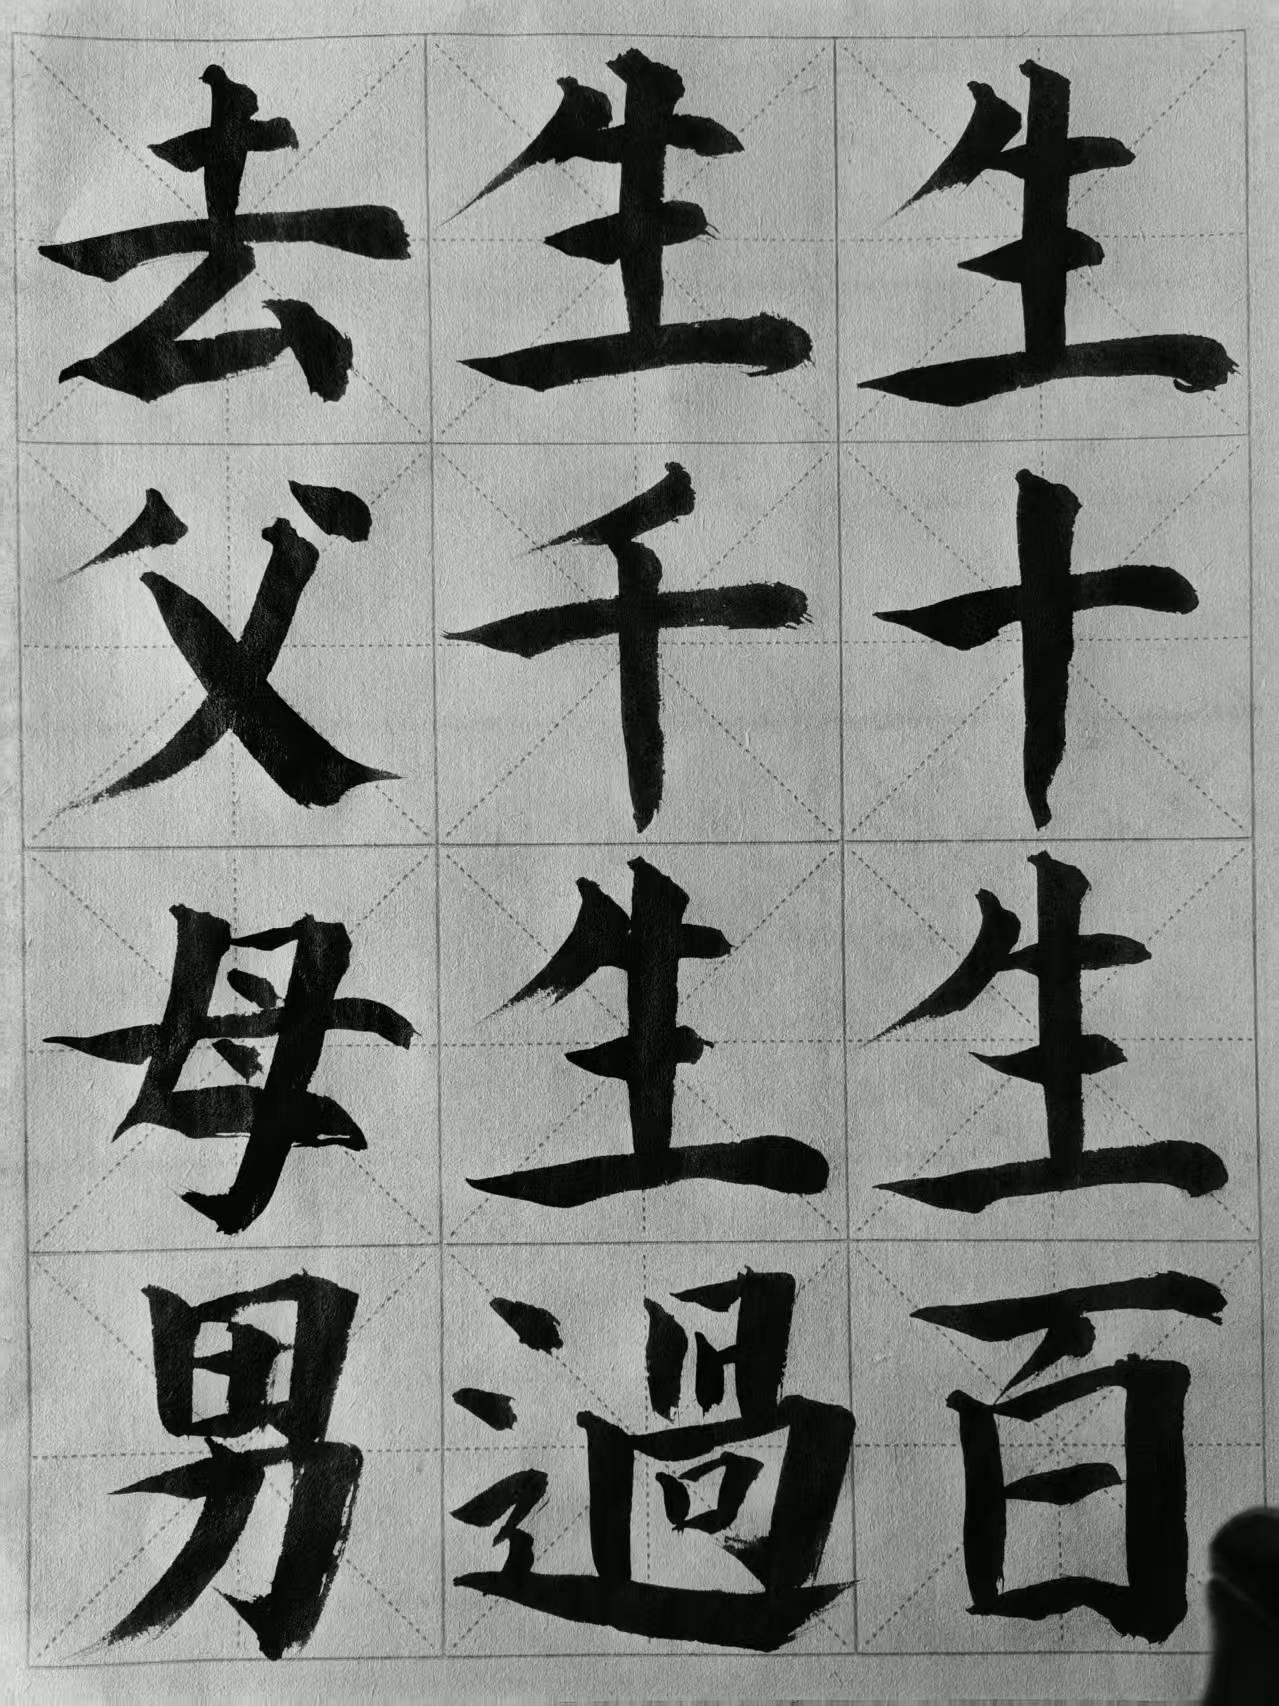 生十生百
生千生過
去父母男